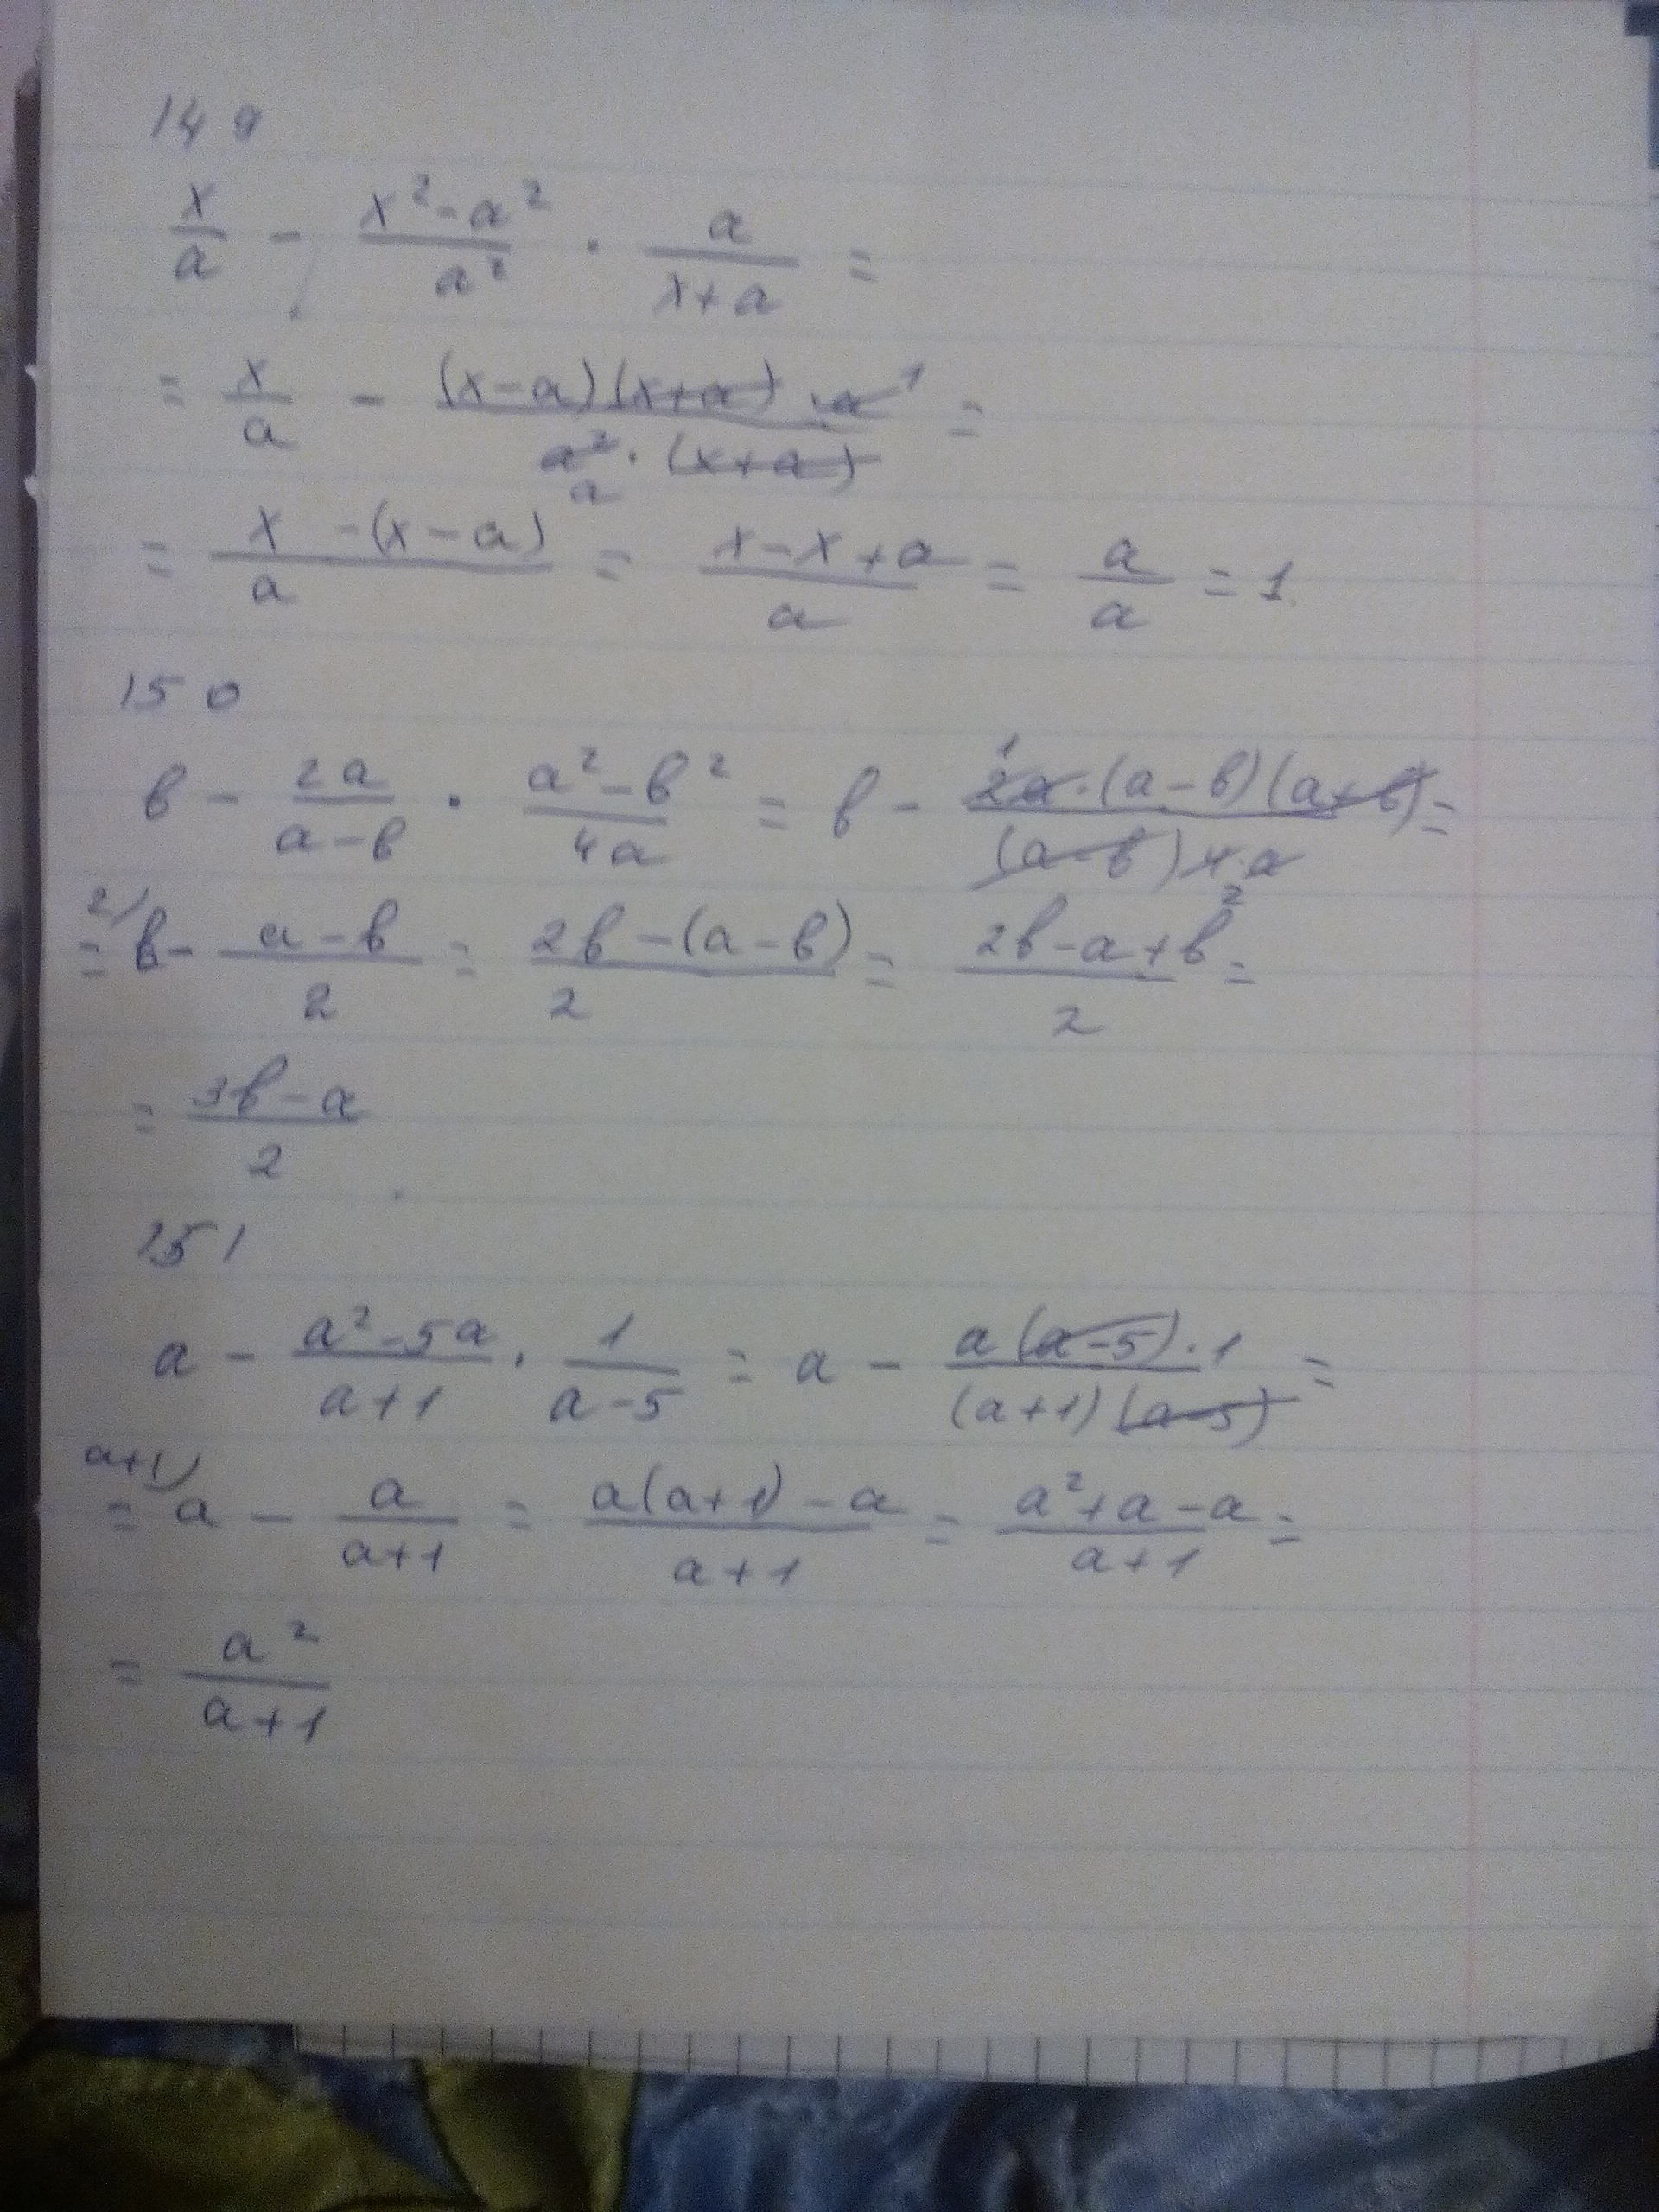 149
x/a - (x² - a²)/a² · a/(x+a) =
= x/a - ((x-a)(x+a) · a 1)/(a² a · (x+a)) =
= (x - (x-a))/a = (x-x+a)/a = a/a = 1.
150
в - 2a/(a-в) · (a² - в²)/4a = в - (1 2a · (a-в)(a+в))/((a-в) 4 2 · a) =
= 2) в - (a-в)/2 = (2в - (a-в))/2 = (2в - a + в)/2 =
= (3в - a)/2
151
a - (a² - 5a)/(a+1) · 1/(a-5) = a - (a(a-5) · 1)/((a+1)(a-5)) =
= a+1) a - a/(a+1) = (a(a+1) - a)/(a+1) = (a² + a - a)/(a+1) =
= a²/(a+1)